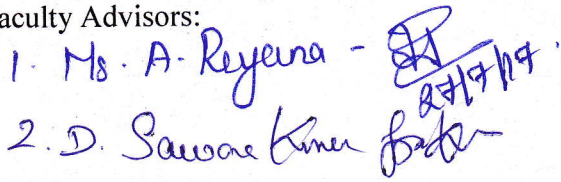 aculty Advisors:
1. Ms. A. Reyana -
27/7/17.
2. D. Kumar